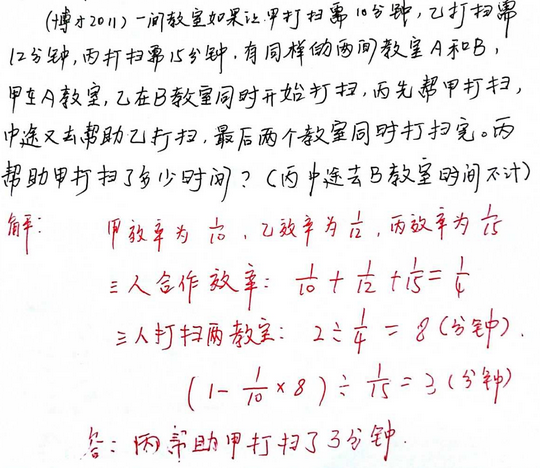 (博才2011)一间教室如果让甲打扫需10分钟,乙打扫需
12分钟,丙打扫需15分钟.有同样的两间教室A和B,
甲在A教室,乙在B教室同时开始打扫,丙先帮甲打扫,
中途又去帮助乙打扫,最后两个教室同时打扫完。丙
帮助甲打扫了多少时间?(丙中途去B教室时间不计)
解: 甲效率为 1/10 、乙效率为 1/12 , 丙效率为 1/15
三人合作效率: 1/10 + 1/12 + 1/15 = 1/4
三人打扫两教室: 2 ÷ 1/4 = 8 (分钟).
(1 - 1/10 × 8) ÷ 1/15 = 3 (分钟)
答:丙帮助甲打扫了3分钟.